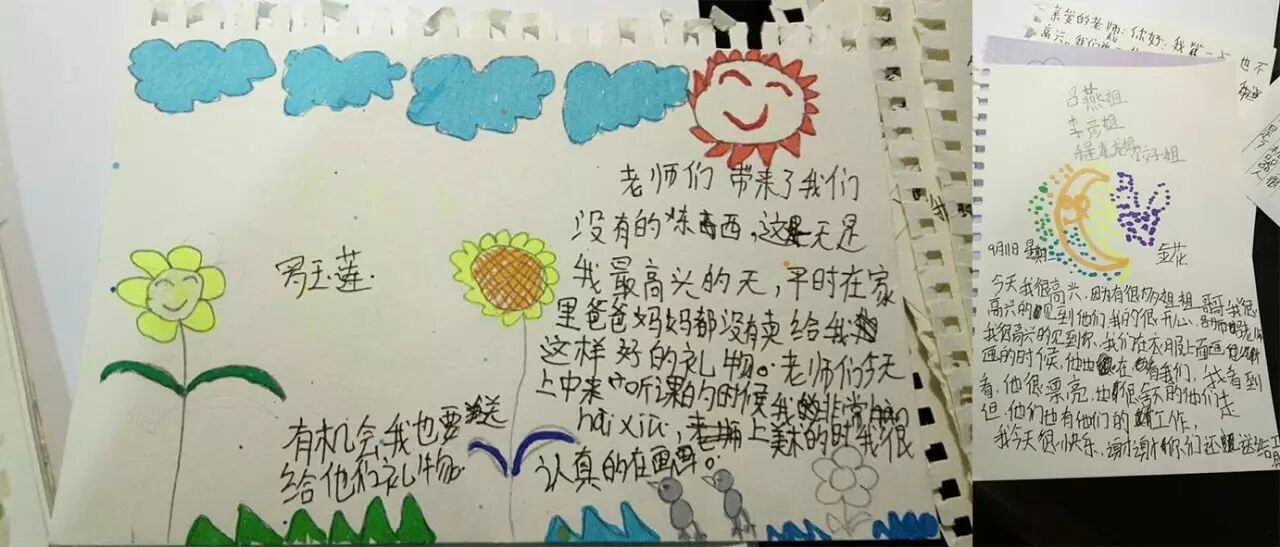 老师们 带来了我们
没有的东西,这是天是
我最高兴的天,平时在家
里爸爸妈妈都没有卖给我
这样好的礼物。老师们今天
上中来听课的时候我非常的
haixiu,老师上美术的时我很
认真的在画画。
罗玉莲.
有机会,我也要送
给他们礼物
亲爱的老师:你好,我 一 也不
高兴。我们
吕燕姐
李彦姐
9月1日 星期
金花
今天我很高兴,因为有很多姐姐 哥哥我很
高兴的见到他们我的很开心
我很高兴的见到你,我们在衣服上面画
画的时候,他也 在 看我们,我看到
看,他很漂亮,也很 的他们走
但,他们也有他们的 工作,
我今天很快乐,谢谢你们还 送给